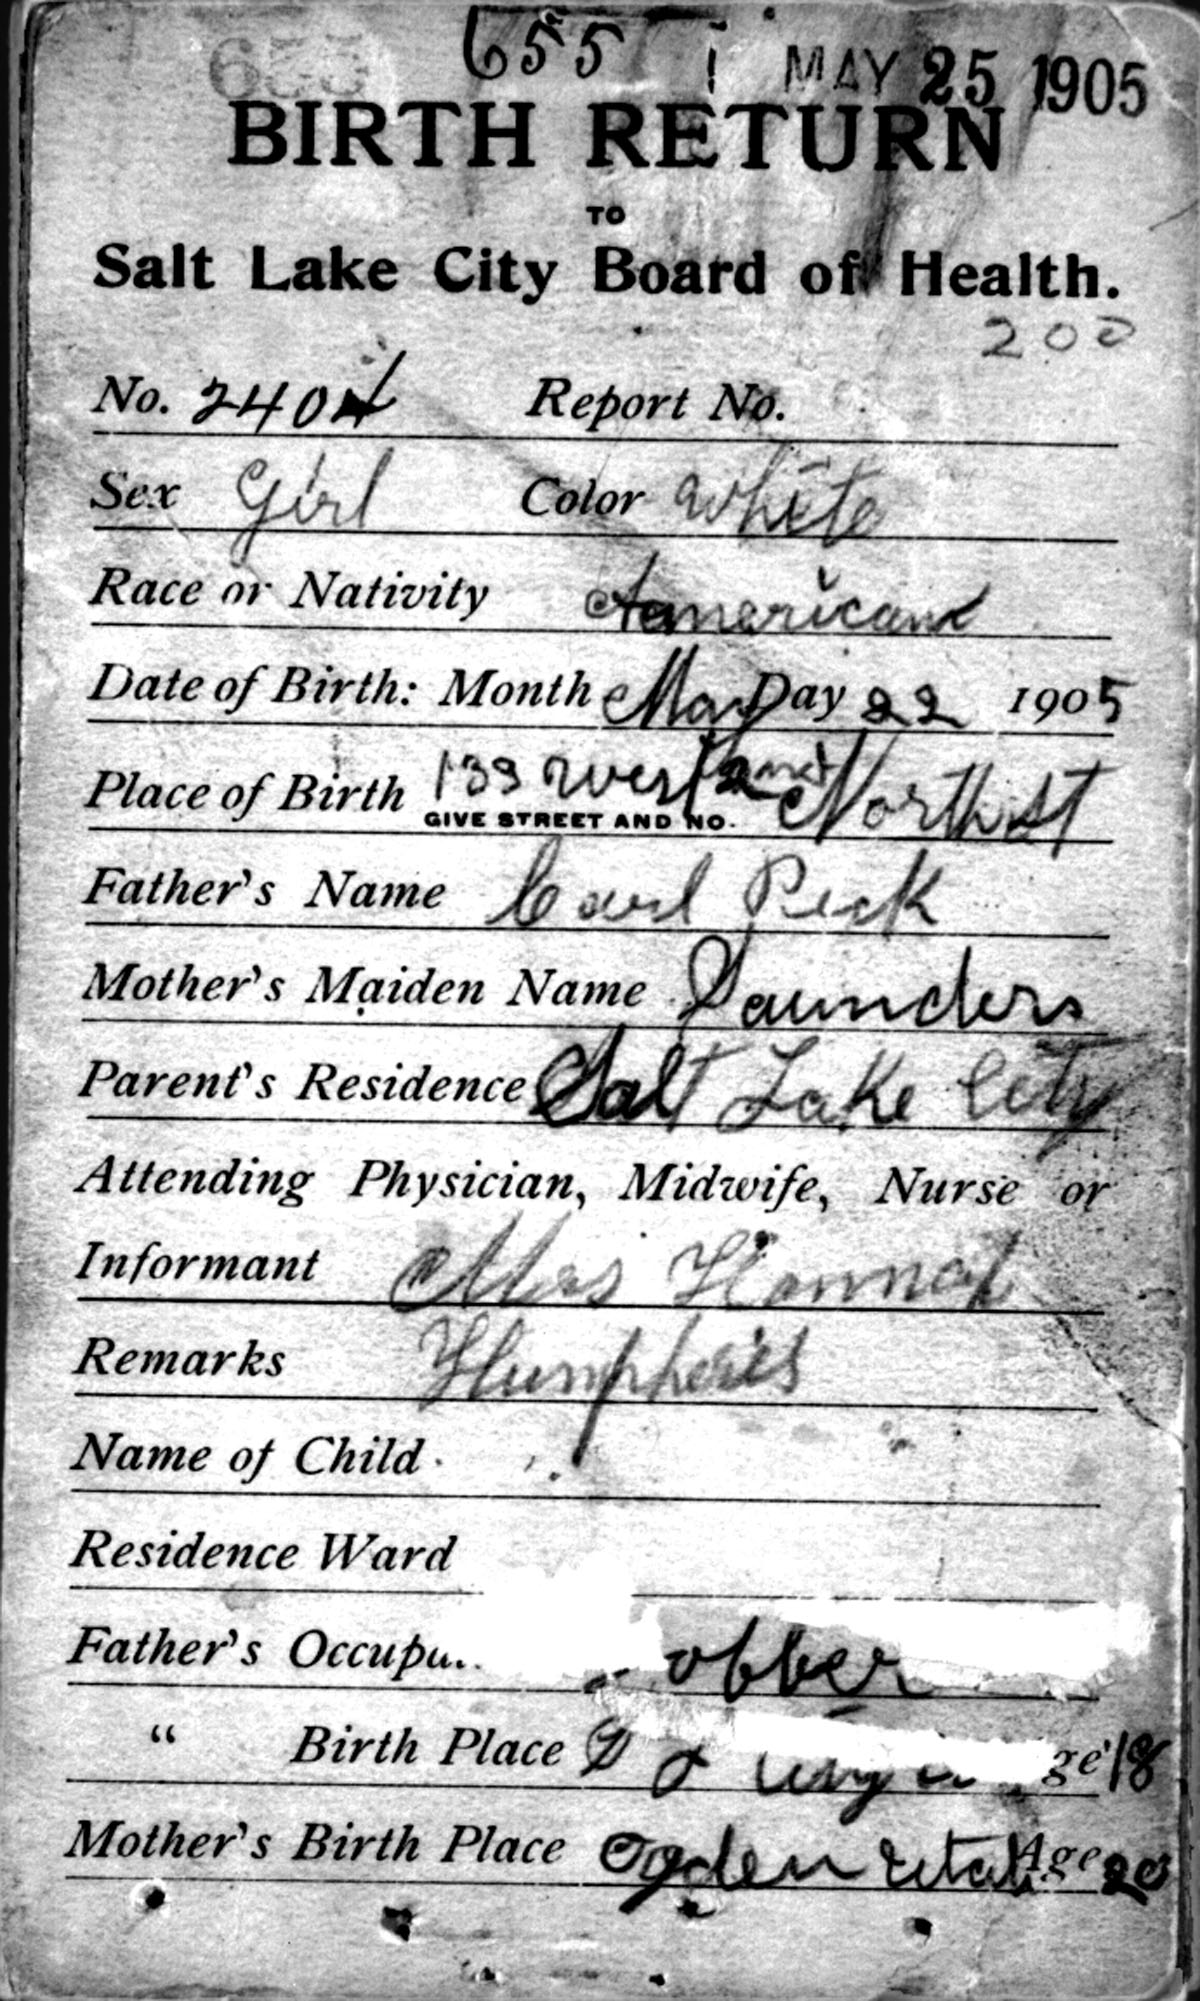 655 655 1 MAY 25 1905
BIRTH RETURN
TO
Salt Lake City Board of Health.
200
No. 2404 Report No.
Sex Girl Color White
Race or Nativity American
Date of Birth: Month May Day 22 1905
Place of Birth 133 West 2nd North St
GIVE STREET AND NO.
Father's Name Carl Peck
Mother's Maiden Name Saunders
Parent's Residence Salt Lake City
Attending Physician, Midwife, Nurse or
Informant Mrs Hannah
Remarks Humpheris
Name of Child
Residence Ward
Father's Occupa
" Birth Place Age 18
Mother's Birth Place Ogden Utah Age 20